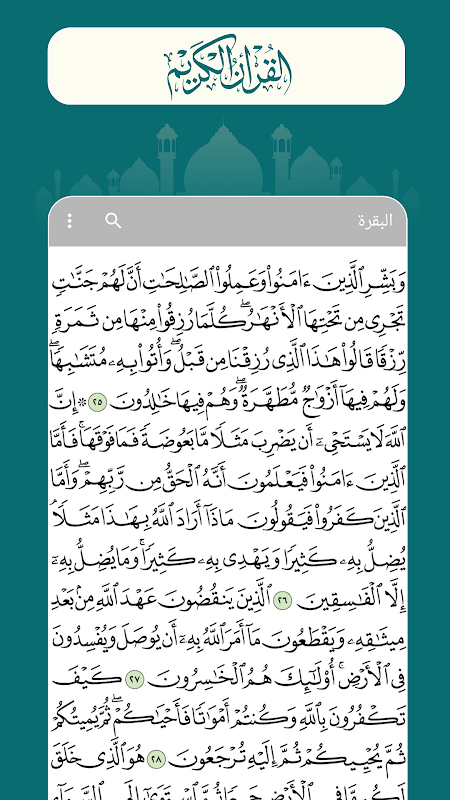 القرآن الكريم
البقرة
وَبَشِّرِ الَّذِينَ ءَامَنُوا۟ وَعَمِلُوا۟ الصَّـٰلِحَـٰتِ أَنَّ لَهُمْ جَنَّـٰتٍ
تَجْرِى مِن تَحْتِهَا الْأَنْهَـٰرُ ۖ كُلَّمَا رُزِقُوا۟ مِنْهَا مِن ثَمَرَةٍ
رِّزْقًا قَالُوا۟ هَـٰذَا الَّذِى رُزِقْنَا مِن قَبْلُ ۖ وَأُتُوا۟ بِهِۦ مُتَشَـٰبِهًا ۖ
وَلَهُمْ فِيهَآ أَزْوَٰجٌ مُّطَهَّرَةٌ ۖ وَهُمْ فِيهَا خَـٰلِدُونَ ٢٥ ۞ إِنَّ
اللَّهَ لَا يَسْتَحْىِۦٓ أَن يَضْرِبَ مَثَلًا مَّا بَعُوضَةً فَمَا فَوْقَهَا ۚ فَأَمَّا
الَّذِينَ ءَامَنُوا۟ فَيَعْلَمُونَ أَنَّهُ الْحَقُّ مِن رَّبِّهِمْ ۖ وَأَمَّا
الَّذِينَ كَفَرُوا۟ فَيَقُولُونَ مَاذَآ أَرَادَ اللَّهُ بِهَـٰذَا مَثَلًا ۘ
يُضِلُّ بِهِۦ كَثِيرًا وَيَهْدِى بِهِۦ كَثِيرًا ۚ وَمَا يُضِلُّ بِهِۦٓ
إِلَّا الْفَـٰسِقِينَ ٢٦ الَّذِينَ يَنقُضُونَ عَهْدَ اللَّهِ مِنۢ بَعْدِ
مِيثَـٰقِهِۦ وَيَقْطَعُونَ مَآ أَمَرَ اللَّهُ بِهِۦٓ أَن يُوصَلَ وَيُفْسِدُونَ
فِى الْأَرْضِ ۚ أُو۟لَـٰٓئِكَ هُمُ الْخَـٰسِرُونَ ٢٧ كَيْفَ
تَكْفُرُونَ بِاللَّهِ وَكُنتُمْ أَمْوَٰتًا فَأَحْيَـٰكُمْ ۖ ثُمَّ يُمِيتُكُمْ
ثُمَّ يُحْيِيكُمْ ثُمَّ إِلَيْهِ تُرْجَعُونَ ٢٨ هُوَ الَّذِى خَلَقَ
لَكُم مَّا فِى الْأَرْضِ جَمِيعًا ثُمَّ اسْتَوَىٰٓ إِلَى السَّمَآءِ